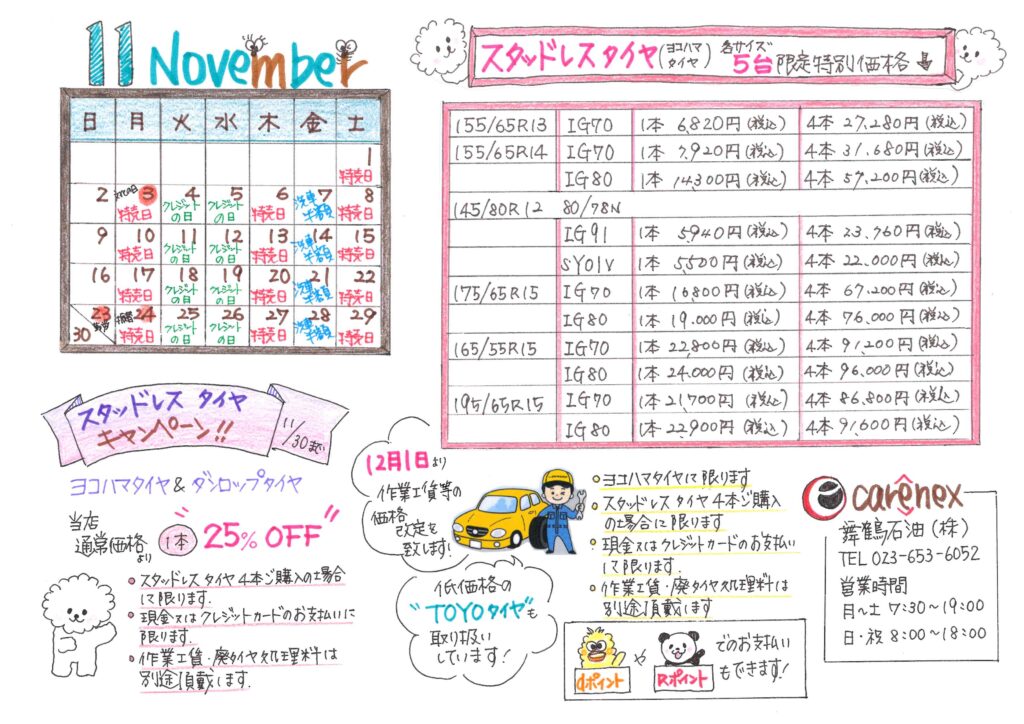 11 November
日 月 火 水 木 金 土
1
特売日
2 3 4 5 6 7 8
文化の日 特売日 クレジットの日 クレジットの日 特売日 洗車半額 特売日
9 10 11 12 13 14 15
特売日 クレジットの日 クレジットの日 特売日 洗車半額 特売日
16 17 18 19 20 21 22
特売日 クレジットの日 クレジットの日 特売日 洗車半額 特売日
23 24 25 26 27 28 29
30 振替 特売日 クレジットの日 クレジットの日 特売日 洗車半額 特売日
スタッドレスタイヤ(ヨコハマタイヤ) 各サイズ5台限定特別価格
155/65R13 IG70 1本 6,820円(税込) 4本 27,280円(税込)
155/65R14 IG70 1本 7,920円(税込) 4本 31,680円(税込)
IG80 1本 14300円(税込) 4本 57,200円(税込)
145/80R12 80/78N
IG91 1本 5,940円(税込) 4本 23,760円(税込)
SY01V 1本 5,500円(税込) 4本 22,000円(税込)
175/65R15 IG70 1本 16800円(税込) 4本 67,200円(税込)
IG80 1本 19,000円(税込) 4本 76,000円(税込)
165/55R15 IG70 1本 22,800円(税込) 4本 91,200円(税込)
IG80 1本 24,000円(税込) 4本 96,000円(税込)
195/65R15 IG70 1本 21,700円(税込) 4本 86,800円(税込)
IG80 1本 22,900円(税込) 4本 91,600円(税込)
スタッドレス タイヤ
キャンペーン!!
11/30まで
ヨコハマタイヤ&ダンロップタイヤ
当店
通常価格より
1本 "25% OFF"
・スタッドレスタイヤ4本ご購入の場合
に限ります.
・現金又はクレジットカードのお支払いに
限ります.
・作業工賃・廃タイヤ処理料は
別途頂戴します.
12月1日より
作業工賃等の
価格
改定を
致します!
低価格の
"TOYOタイヤ"も
取り扱い
しています!
・ヨコハマタイヤに限ります
・スタッドレスタイヤ4本ご購入
の場合に限ります
・現金又はクレジットカードのお支払い
に限ります.
・作業工賃・廃タイヤ処理料は
別途頂戴します
dポイント や Rポイント でのお支払い
もできます!
carênex
舞鶴石油(株)
TEL 023-653-6052
営業時間
月~土 7:30~19:00
日・祝 8:00~18:00